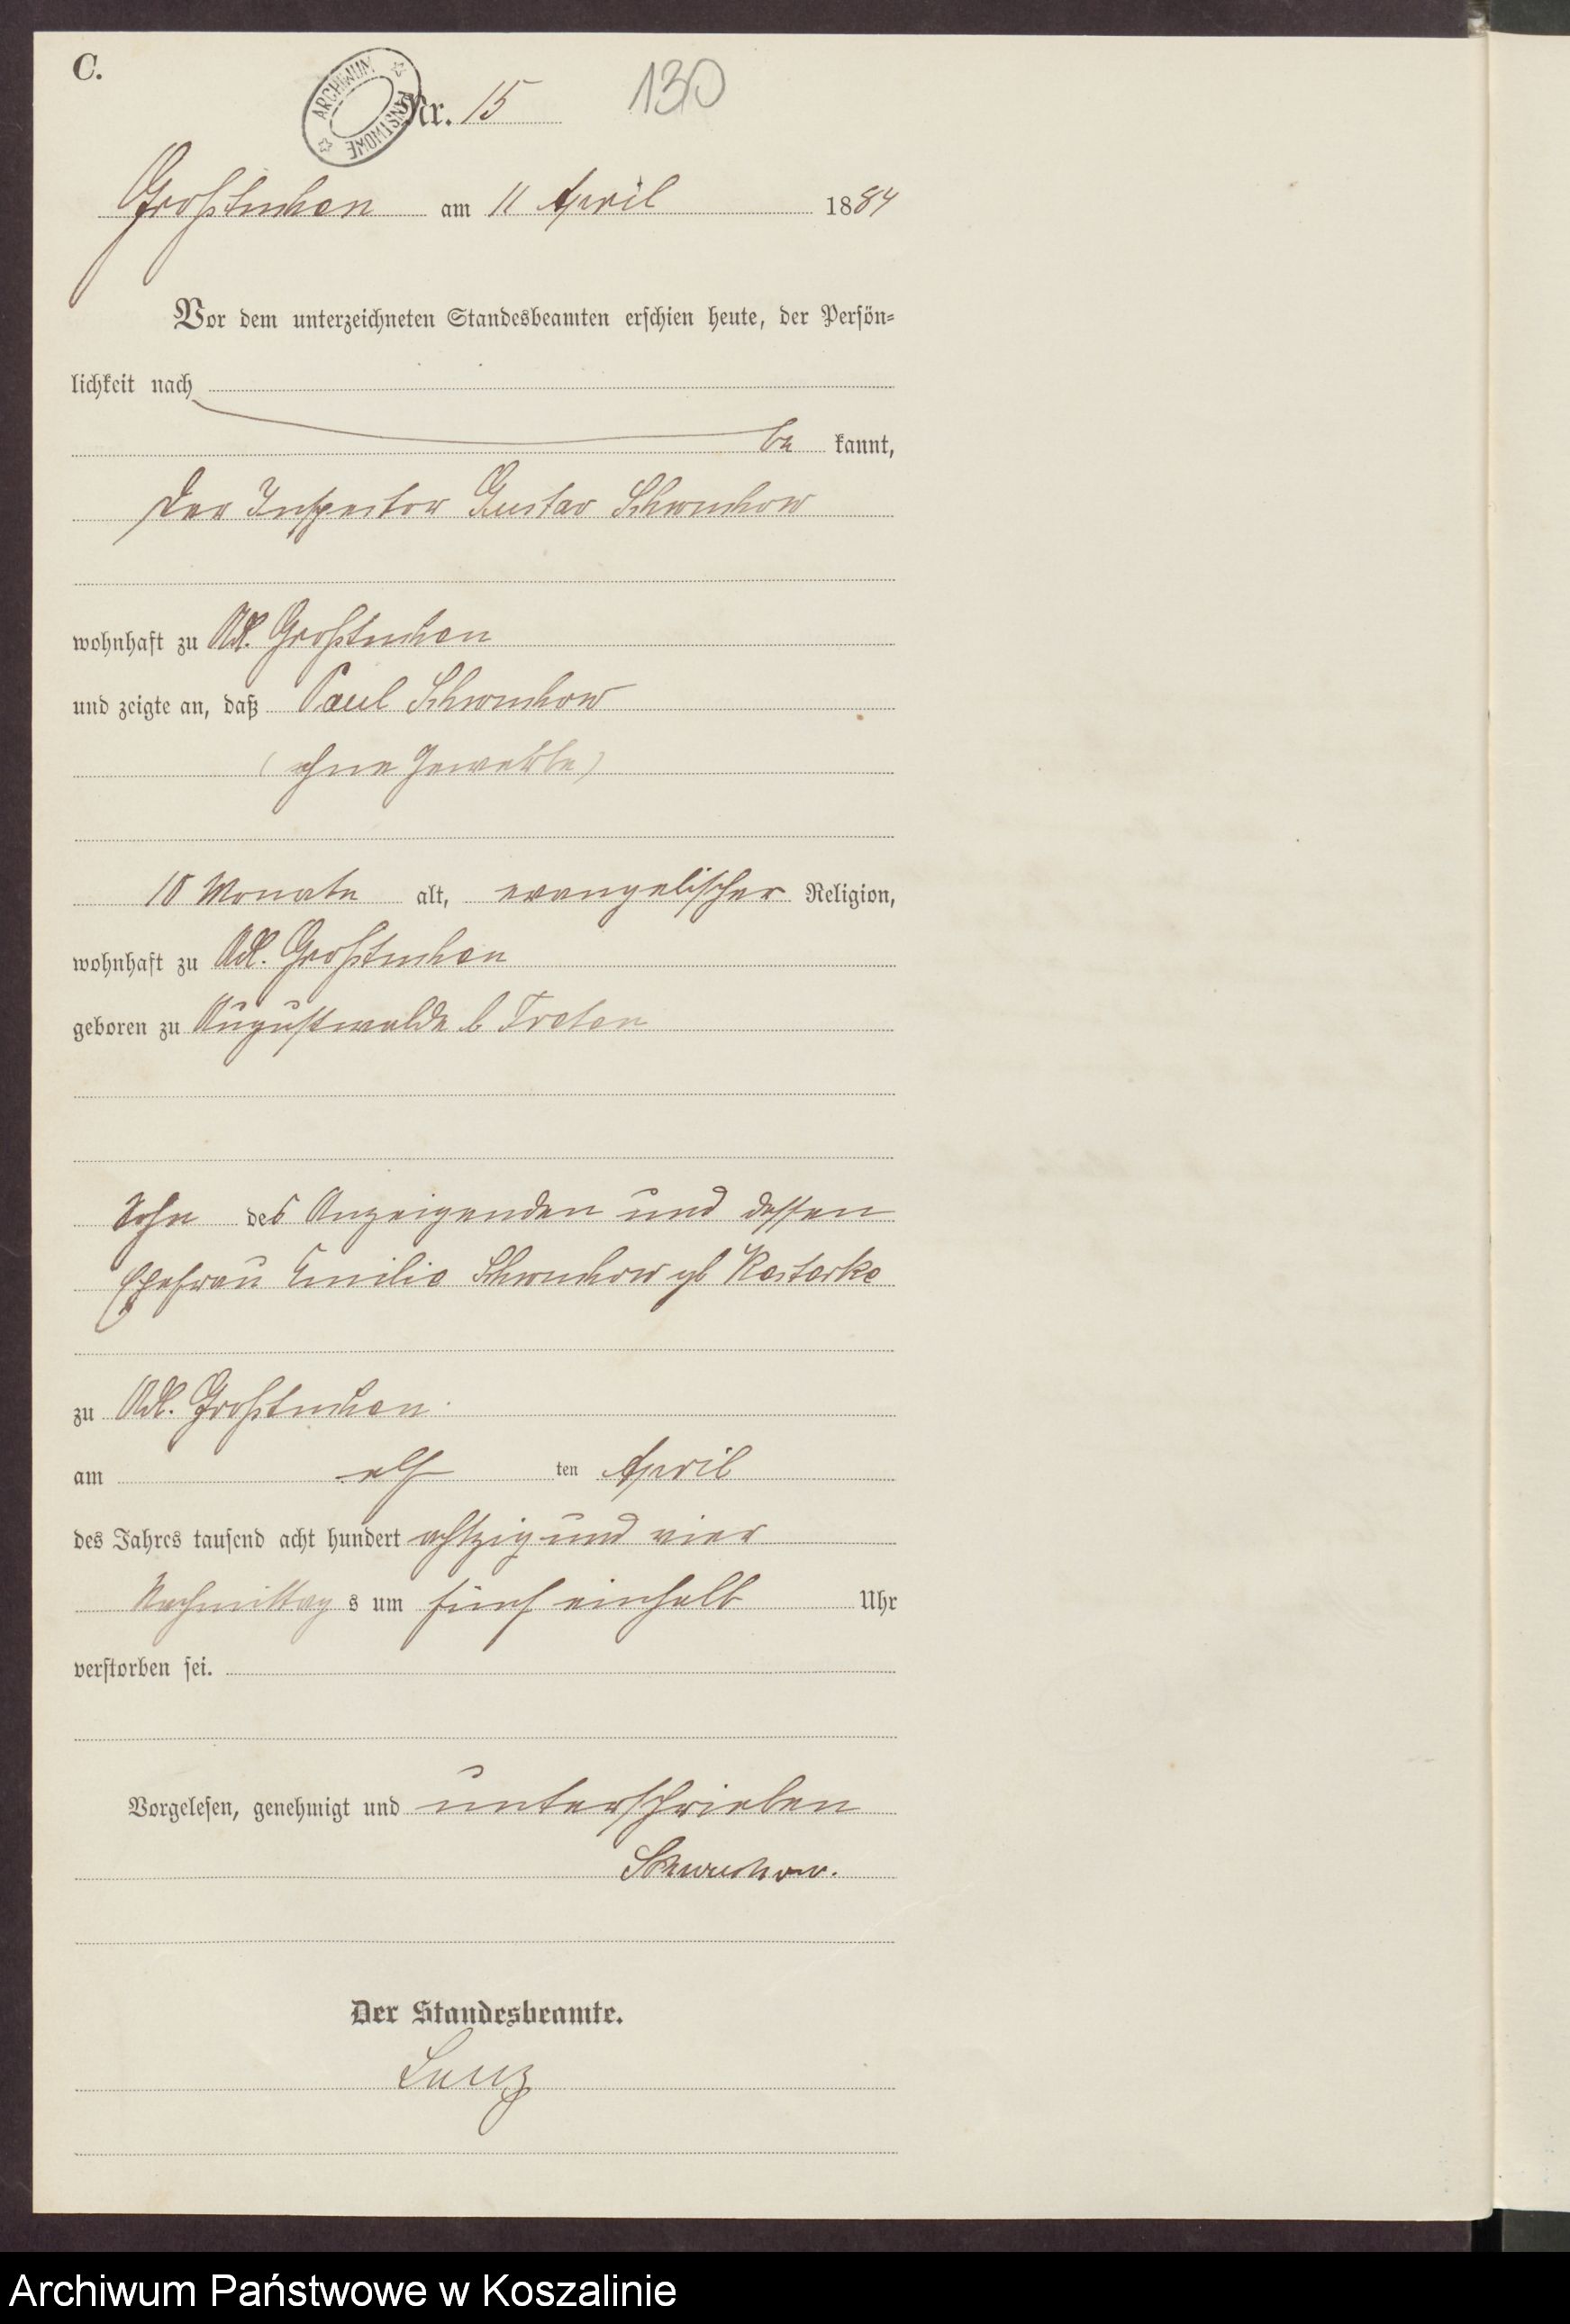 C.
ARCHIWUM PAŃSTWOWE
Nr. 15 130
Großtuchen am 11 April 1884
Vor dem unterzeichneten Standesbeamten erschien heute, der Persön-
lichkeit nach
be kannt,
der Inspector Gustav Schwuchow
wohnhaft zu Adl. Großtuchen
und zeigte an, daß Paul Schwuchow
(ohne Gewerbe)
10 Monate alt, evangelischer Religion,
wohnhaft zu Adl. Großtuchen
geboren zu Augustwalde b
Sohn des Anzeigenden und dessen
Ehefrau Emilie Schwuchow gb
zu Adl. Großtuchen.
am elf ten April
des Jahres tausend acht hundert achtzig und vier
Nachmittag s um fünf einhalb Uhr
verstorben sei.
Vorgelesen, genehmigt und unterschrieben
Schwuchow.
Der Standesbeamte.
Archiwum Państwowe w Koszalinie